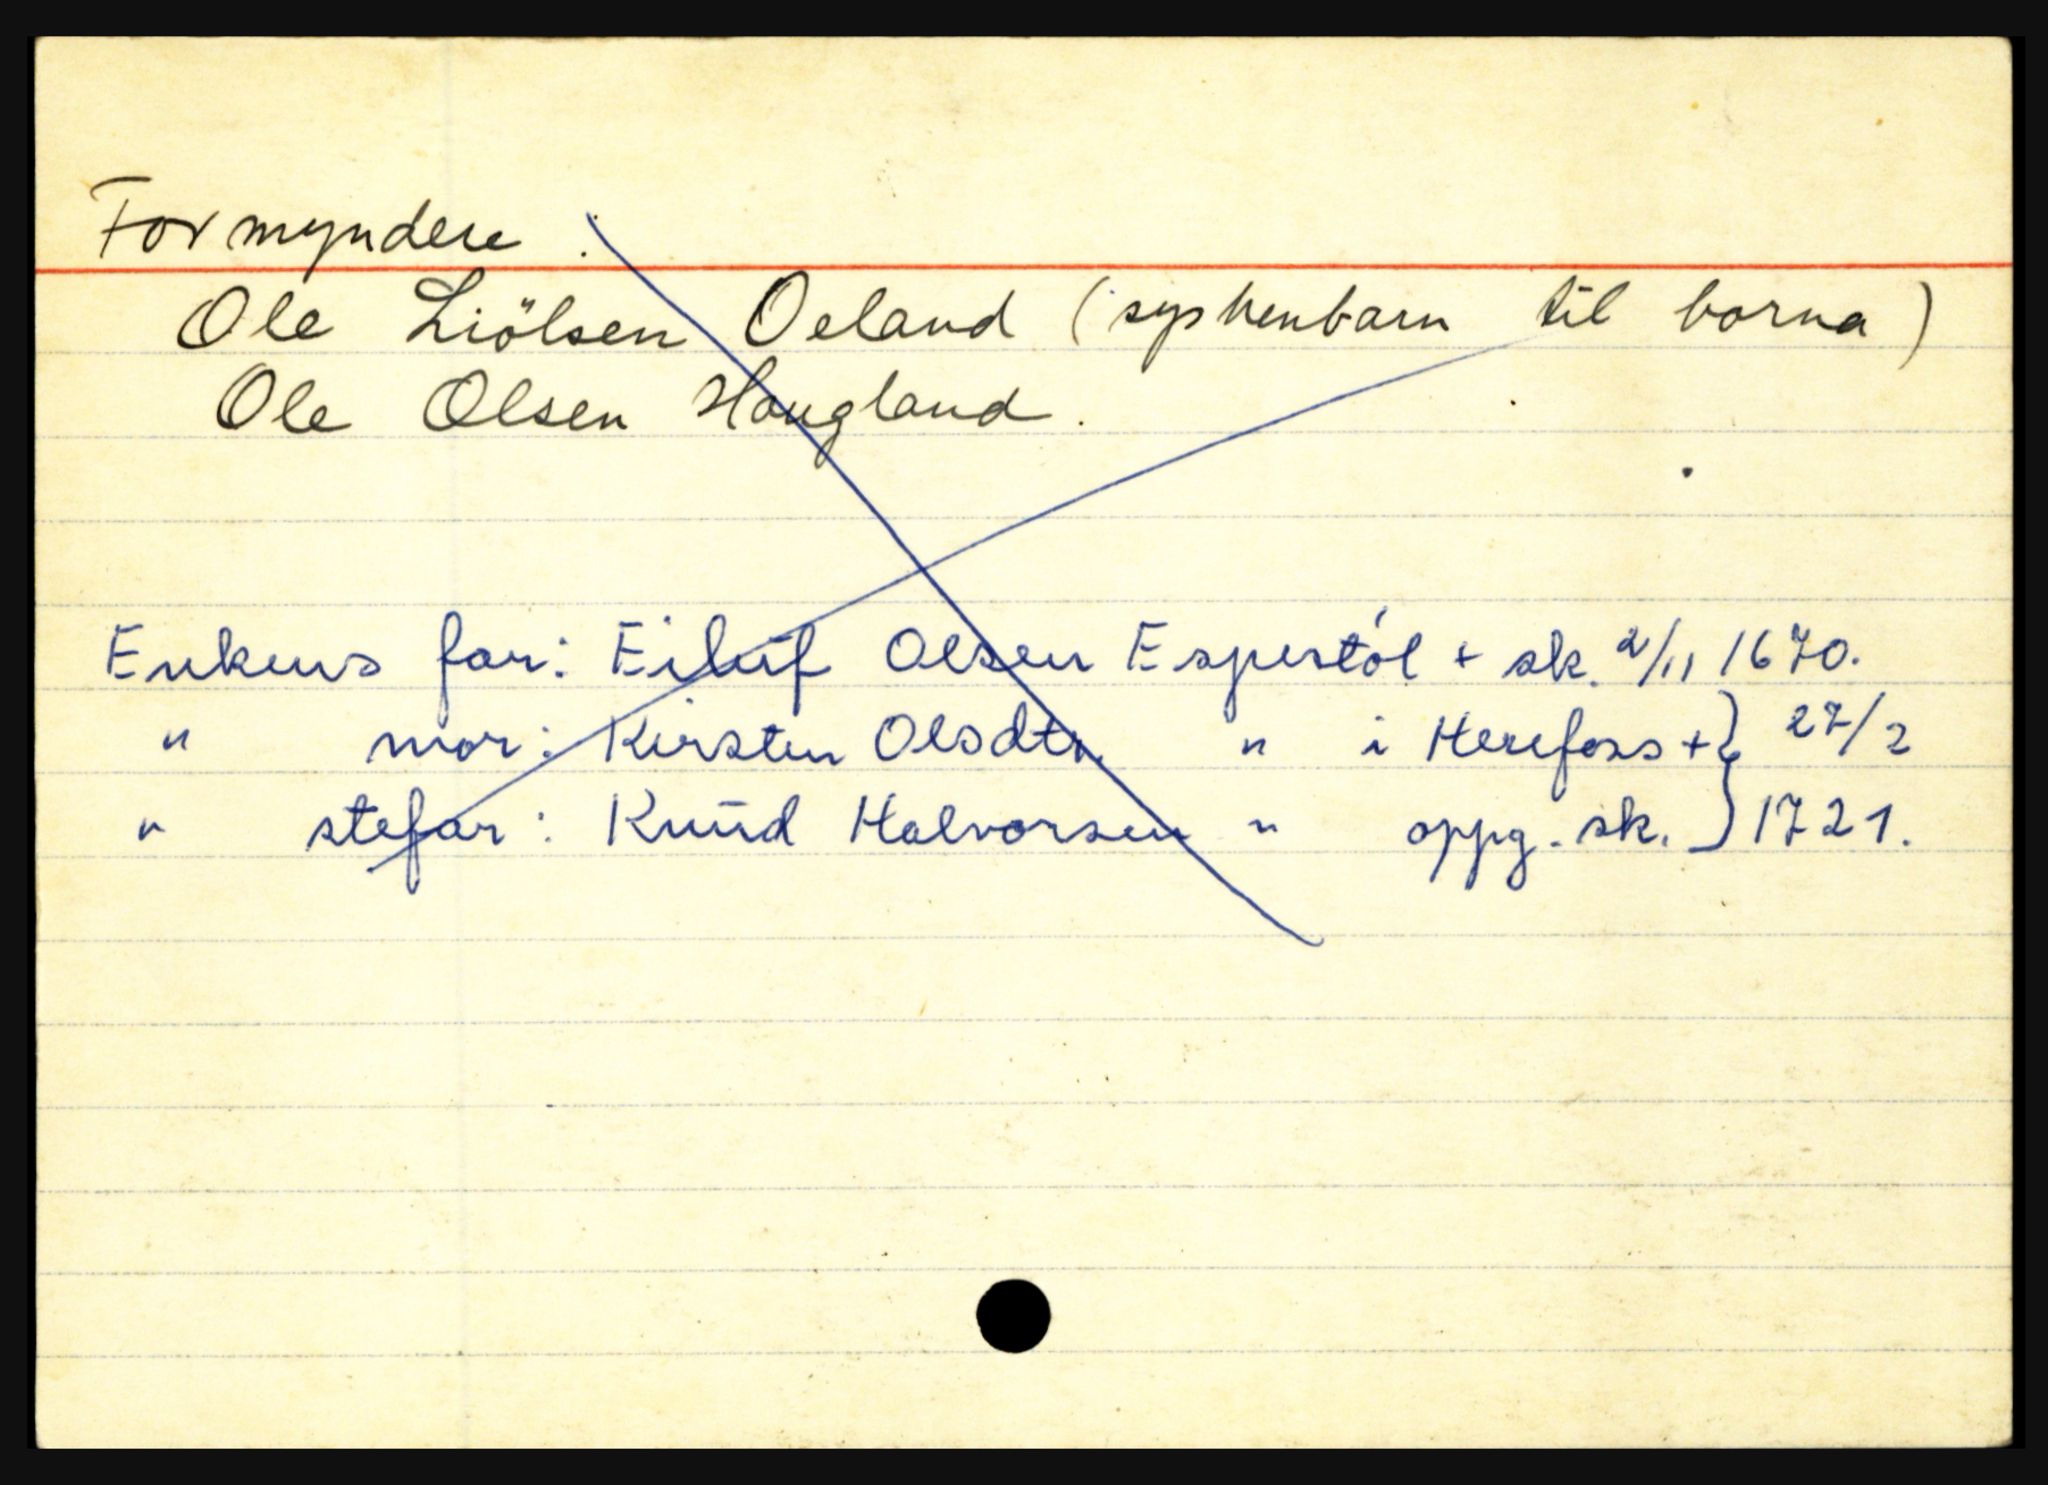 Formyndere.
Ole Liölsen Oeland (syskenbarn til borna)
Ole Olsen Haugland.
Enkens far: Eiluf Olsen Espestól + sk. 2/11 1670.
" mor: Kirsten Olsdtr. " i Herefoss + } 27/2
" stefar: Knud Halvorsen " oppg. sk. } 1721.